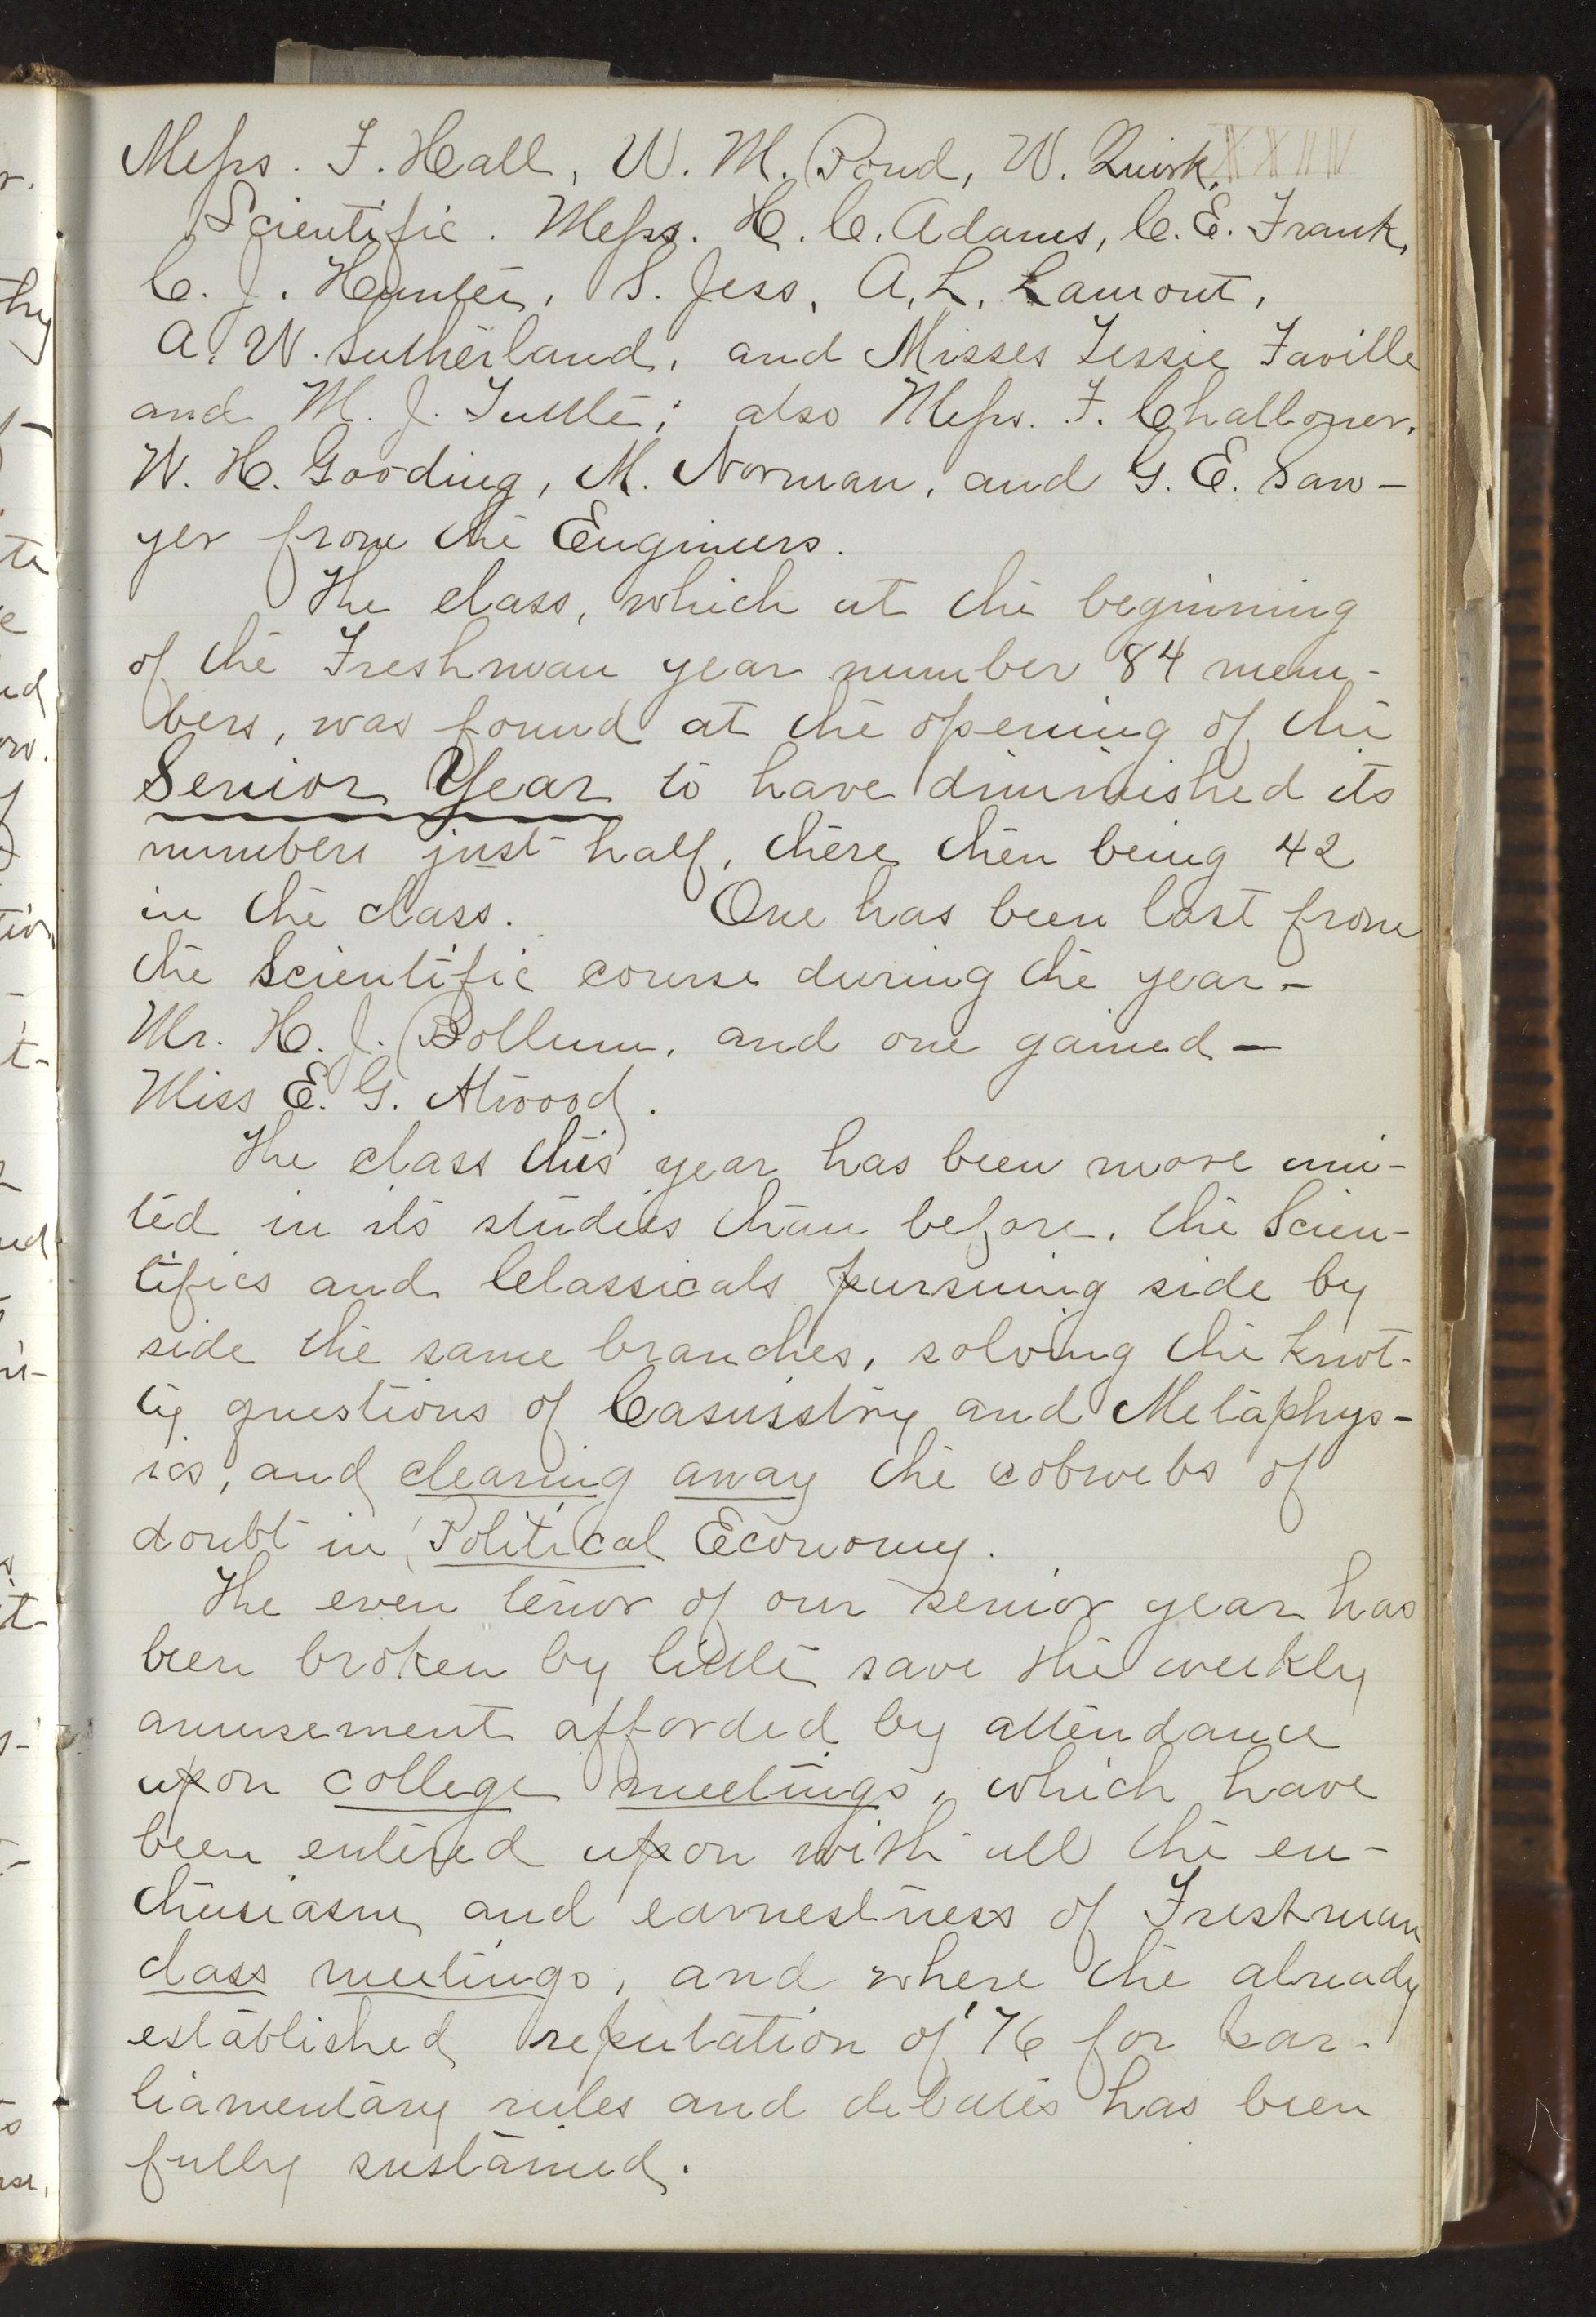 Mess. F. Hall, W. M. Pond, W. Quirk. XXIIV
Scientific. Mess. H. C. Adams, C. E. Frank,
C. J. Hunter, S. Jess, A. L. Lamont,
A. W. Sutherland, and Misses Lessie Faville
and M. J. Tuttle; also Mess. F. Challoner,
W. H. Gooding, M. Norman, and G. E. Saw-
yer from the Engineers.
The class, which at the beginning
of the Freshman year number 84 mem-
bers, was found at the opening of the
Senior Year to have diminished its
numbers just half, there then being 42
in the class. One has been lost from
the Scientific course during the year –
Mr. H. J. Bollum, and one gained –
Miss E. G. Atwood.
The class this year has been more uni-
ted in its studies than before, the Scien-
tifics and Classicals pursuing side by
side the same branches, solving the knot-
ty questions of Casuisstry and Metaphys-
ics, and clearing away the cobwebs of
doubt in Political Economy.
The even tenor of our senior year has
been broken by little save the weekly
amusement afforded by attendance
upon college meetings, which have
been entered upon with all the en-
thusiasm and earnestness of Freshman
class meetings, and where the already
established reputation of '76 for par-
liamentary rules and debates has been
fully sustained.